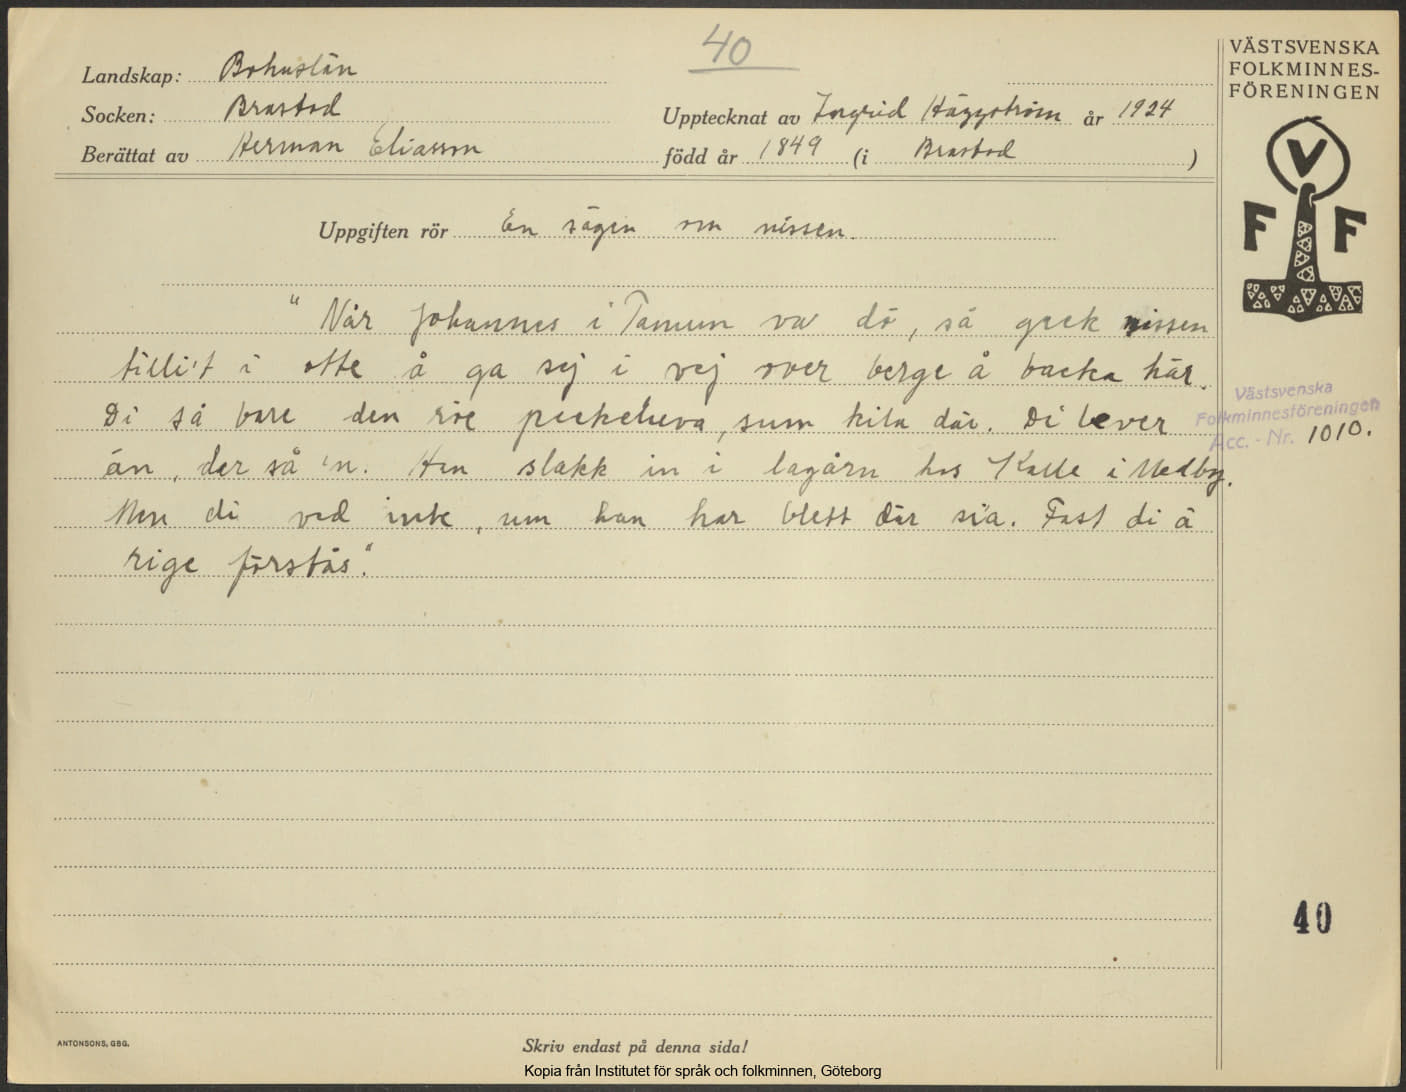 40
VÄSTSVENSKA
FOLKMINNES-
FÖRENINGEN
Landskap: Bohuslän
Socken: Brastad
Upptecknat av Ingrid Häggström år 1924
Berättat av Herman Eliasson född år 1849 (i Brastad)
V
F F
Uppgiften rör En sägen om nissen.
"När Johannes i Tanum va dö, så geck nissen
tilli't i otte å ga sej i vej över berge å backa här.
Di så bare den röe peckelueva, sum kila där. Di lever
än, der så 'n. Han slakk in i lagårn hos Kalle i Medby.
Men di ved inte, um han har blett där sia. Fast di ä
rige förstås."
Västsvenska
Folkminnesföreningen
Acc. - Nr. 1010.
40
ANTONSONS, GBG.
Skriv endast på denna sida!
Kopia från Institutet för språk och folkminnen, Göteborg